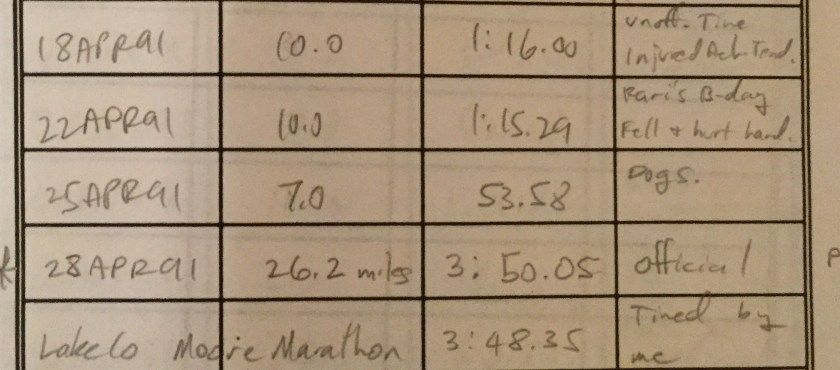 18APR91 10.0 1:16.00 unoff. Time
Injured Ach. Tend.
22APR91 10.0 1:15.29 Kari's B-day
Fell + hurt hand.
25APR91 7.0 53.58 Dogs.
28APR91 26.2 miles 3:50.05 official
Lake Co Moore Marathon 3:48.35 Timed by
me